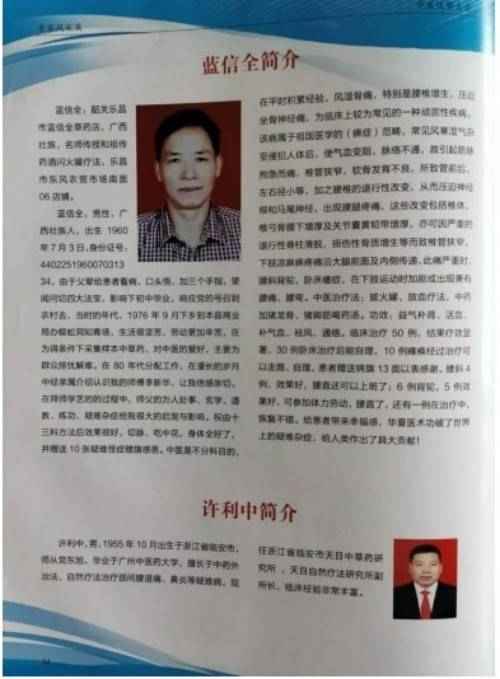 蓝信全简介
蓝信全，韶关乐昌
市蓝信全草药店，广西
壮族，名师传授和祖传
药酒闪火罐疗法，乐昌
市东风农贸市场南面
06店铺。
蓝信全，男性，广
西壮族人，出生 1960
年7月3日，身份证号：
4402251960070313
34，由于父辈给患者看病，口头语，加三个手指，望
闻问切四大法宝，影响下初中毕业，响应党的号召到
农村去，当时的年代，1976年9月下乡到本县商业
局办蜈蚣洞知青场，生活很坚苦，劳动更加辛苦，在
为得条件下采集样本中草药，对中医的爱好，主要为
群众排忧解难，在80年代分配工作，在漫长的岁月
中经亲属介绍认识我的师傅李新华，让我倍感亲切，
在拜师学艺的的过程中，师父的为人处事，玄学，道
教，练功，疑难杂症给我很大的启发与影响，祝由十
三科方法后效果很好，切脉，吃中花，身体全好了，
并赠送10张疑难怪症锦旗感恩。中医是不分科目的，
在平时积累经验，风湿骨痛，特别是腰椎增生，压迫
全骨神经痛，为临床上较为常见的一种顽固性疾病，
该病属于祖国医学的（痹症）范畴，常见风寒湿气杂
至侵犯人体后，使气血变阻，脉络不通，故引起筋脉
拘急而痛，椎管狭窄，软骨发育不良，所致管前后，
左右径小等，加之腰椎的退行性改变，从而压迫神经
根和马尾神经，出现腰腿疼痛，这些改变包括椎体，
椎弓骨膜下增厚及关节囊黄韧带增厚，亦可因严重的
退行性脊柱滑脱，损伤性骨质增生等而致椎管狭窄，
下肢凉麻疼痛沿大腿前面及内侧传递，此痛严重时，
腰斜背驼，卧床瘫症，在下肢运动时加剧或出现兼有
腰痛，腰弯。中医治疗法：拔火罐，放血疗法，中药
加猪龙骨，猪脚筋喝药汤，功效：益气补肾，活血，
补气血，祛风，通络，临床治疗50例，结果疗效显
著，30例卧床治疗后能自理，10例瘫痪经过治疗可
以走路，自理，患者赠送锦旗13面以表感谢，腰斜4
例，效果好，腰直还可以上班了；6例背驼，5例效
果好，可参加体力劳动，腰直了，还有一例在治疗中，
恢复不错，给患者带来幸福感，华夏医术功破了世界
上的疑难杂症，给人类作出了具大贡献！
许利中简介
许利中，男，1955年10月出生于浙江省临安市，
师从党东旭，毕业于广州中医药大学，擅长于中药外
治法、自然疗法治疗颈间腰退痛、鼻炎等疑难病，现
任浙江省临安市天目中草药研
究所，天目自然疗法研究所副
所长，临床经验非常丰富。